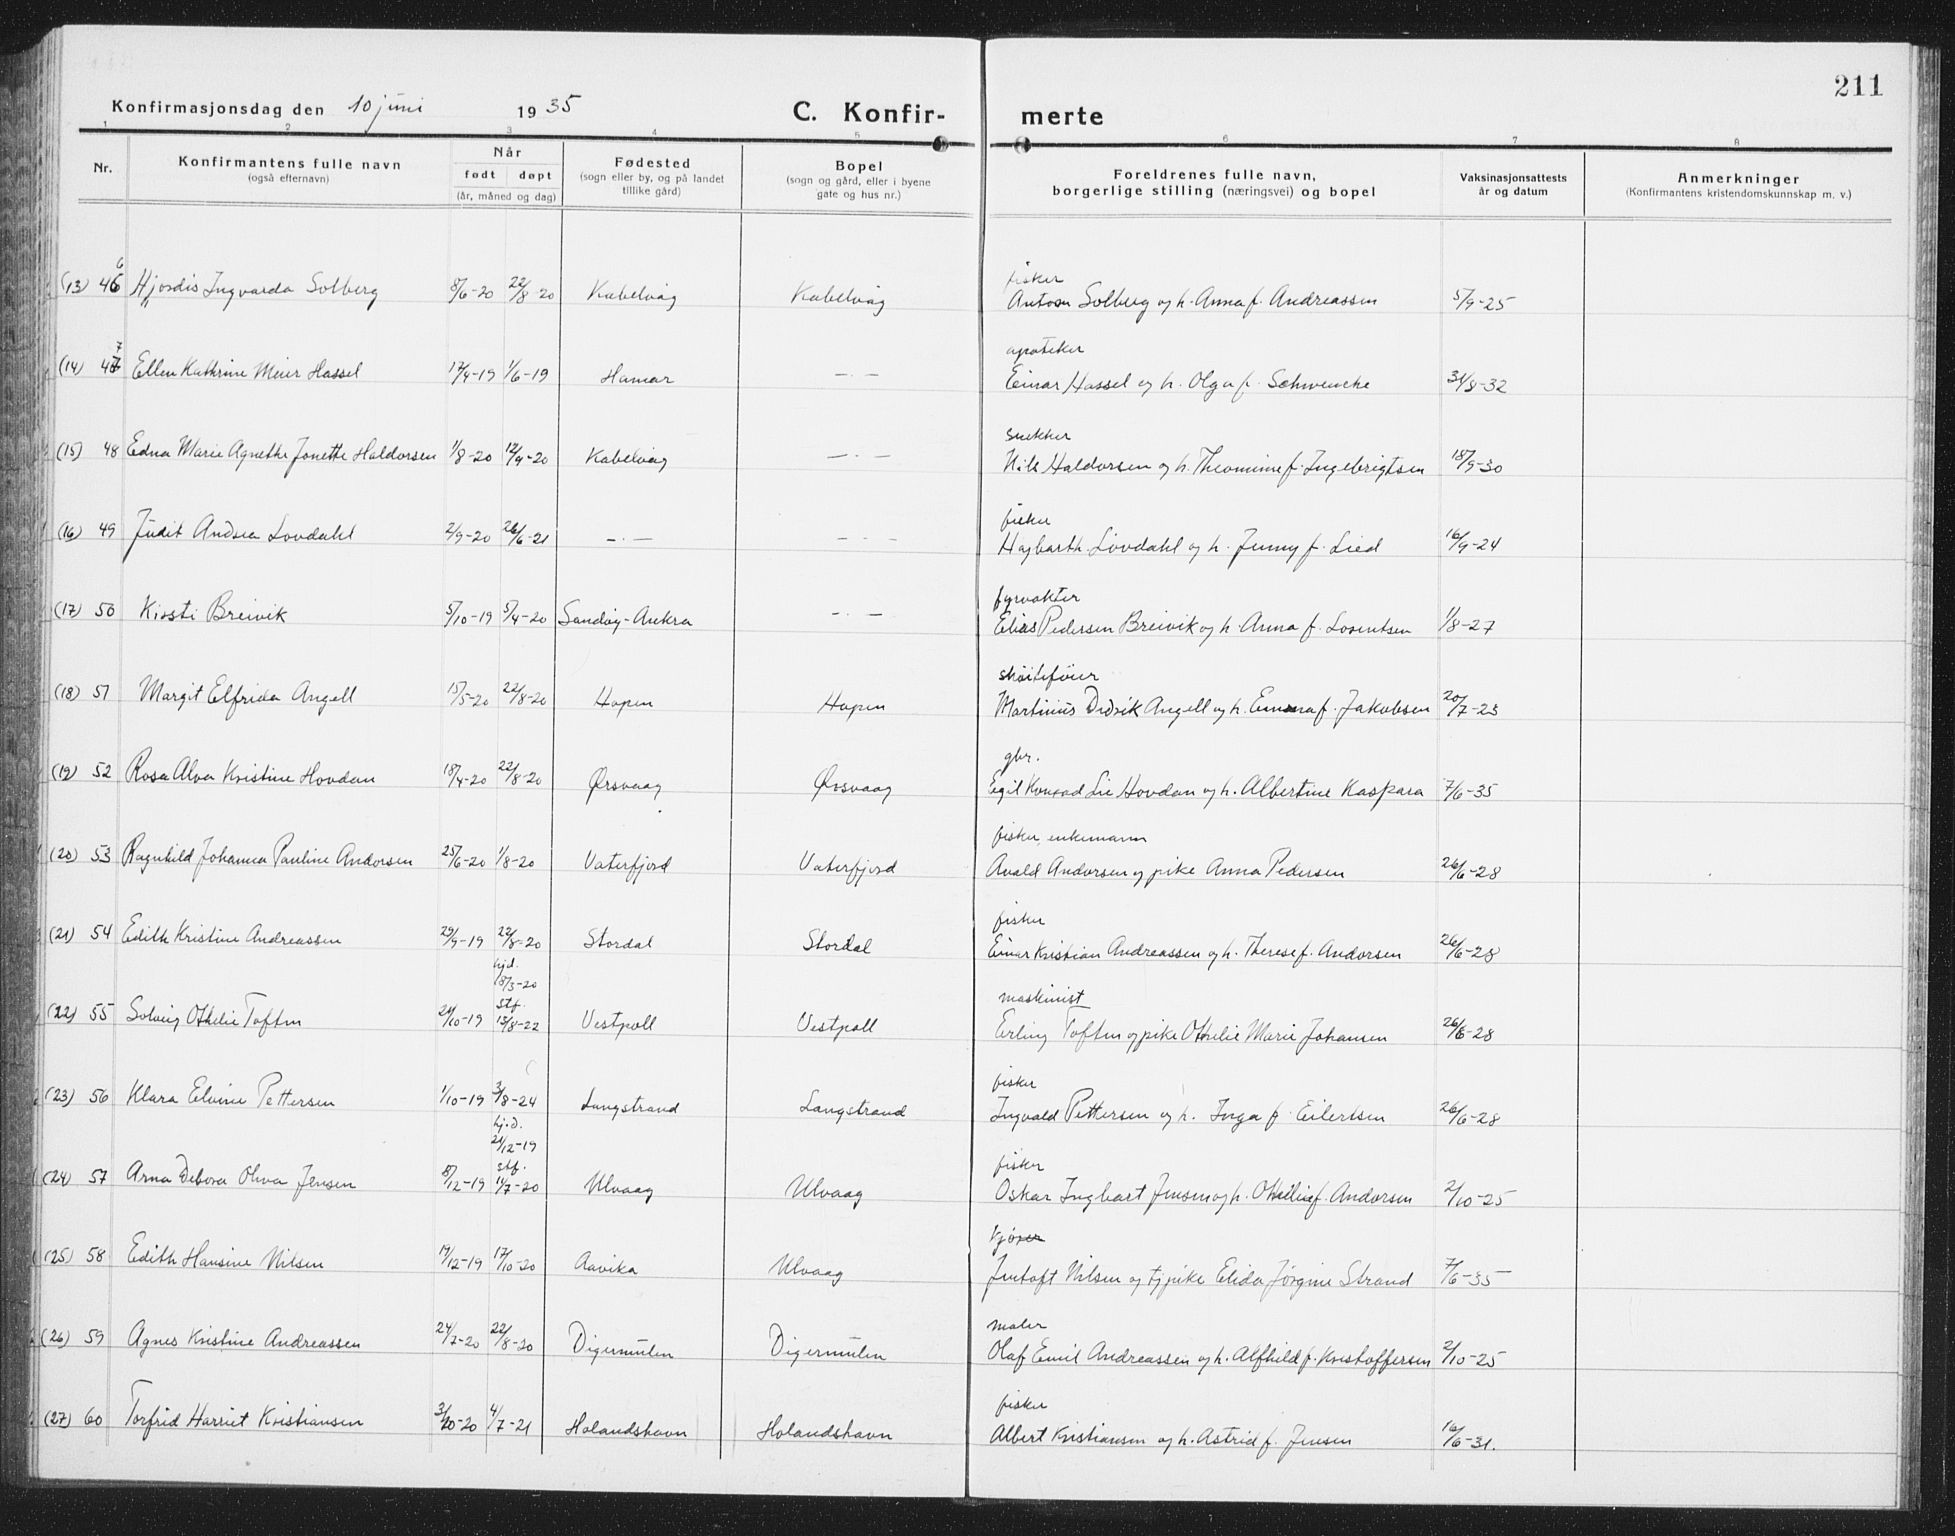 211
Konfirmasjonsdag den 10 juni 1935 C. Konfir- merte
1 2 3 4 5 6 7 8
Nr. Konfirmantens fulle navn (også efternavn) Når født døpt (år, måned og dag) Fødested (sogn eller by, og på landet tillike gård) Bopel (sogn og gård, eller i byene gate og hus nr.) Foreldrenes fulle navn, borgerlige stilling (næringsvei) og bopel Vaksinasjonsattests år og datum Anmerkninger (Konfirmantens kristendomskunnskap m. v.)
fisker
(13) 46 Hjordis Ingvarda Solberg 8/6-20 22/8-20 Kabelvåg Kabelvåg Anton Solberg og h. Anna f. Andreassen 5/9-25
apoteker
(14) 47 Ellen Kathrine Meier Hassel 17/4-19 1/6-19 Hamar —·— Einar Hassel og h. Olga f. Schwencke 31/8-32
snekker
(15) 48 Edna Marie Agnethe Jonette Haldorsen 1/8-20 12/9-20 Kabelvåg —·— Nils Haldorsen og h. Theomine f. Ingebrigtsen 18/9-30
fisker
(16) 49 Judit Andrea Lovdahl 2/9-20 26/6-21 —·— —·— Hagbarth Lovdahl og h. Jenny f. Lied 16/9-24
fyrvakter
(17) 50 Kirsti Breivik 5/10-19 5/4-20 Sandøy-Aukra —·— Elias Pedersen Breivik og h. Anna f. Lorentsen 1/8-27
skøitefører
(18) 51 Margit Elfrida Angell 15/5-20 22/8-20 Hopen Hopen Martinus Didrik Angell og h. Emma f. Jakobsen 20/7-23
gbr.
(19) 52 Rosa Alva Kristine Hovdan 18/4-20 22/8-20 Ørsvaag Ørsvaag Egil Konrad Lie Hovdan og h. Albertine Kaspara 7/6-35
fisker, enkemann
(20) 53 Ragnhild Johanna Pauline Andorsen 25/6-20 1/8-20 Vaterfjord Vaterfjord Avald Andorsen og pike Anna Pedersen 26/6-28
fisker
(21) 54 Edith Kristine Andreassen 29/9-19 22/8-20 Stordal Stordal Einar Kristian Andreassen og h. Therese f. Andorsen 26/6-28
hjd.
18/3-20
stf. maskinist
(22) 55 Solveig Othelie Toften 24/10-19 13/8-22 Vestpoll Vestpoll Erling Toften og pike Othelie Marie Johansen 26/6-28
fisker
(23) 56 Klara Elvine Pettersen 1/10-19 3/8-24 Langstrand Langstrand Ingvald Pettersen og h. Inga f. Eilertsen 26/6-28
hj.d.
21/12-19
stf. fisker
(24) 57 Arna Debora Oliva Jensen 8/12-19 11/7-20 Ulvaag Ulvaag Oskar Ingbart Jensen og h. Othilie f. Andorsen 2/10-25
kjører
(25) 58 Edith Hansine Nilsen 19/12-19 17/10-20 Aavika Ulvaag Jentoft Nilsen og tjpike Elida Jørgine Strand 7/6-35
maler
(26) 59 Agnes Kristine Andreassen 24/7-20 22/8-20 Digermulen Digermulen Olaf Emil Andreassen og h. Alfhild f. Kristoffersen 2/10-25
fisker
(27) 60 Torfrid Harriet Kristiansen 3/10-20 4/7-21 Holandshavn Holandshavn Albert Kristiansen og h. Astrid f. Jensen 16/6-31.